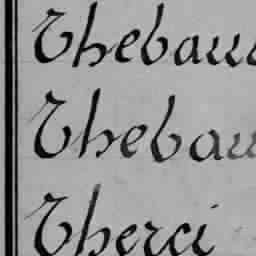 Thebau
Thebau
Therci